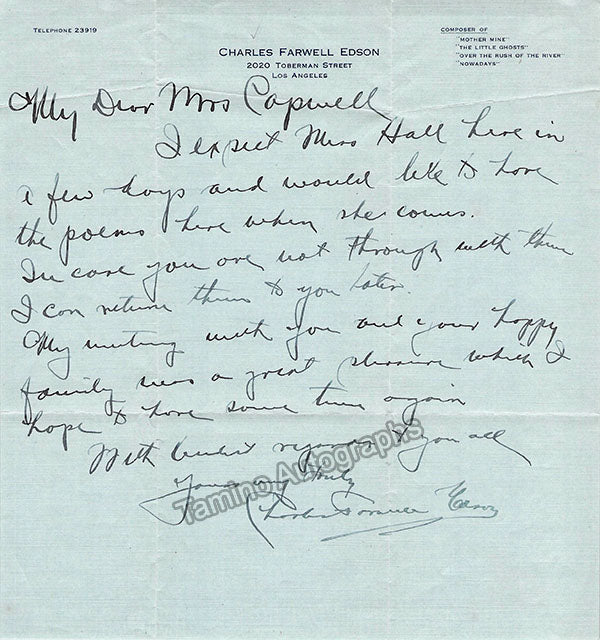 TELEPHONE 23919
CHARLES FARWELL EDSON
2020 TOBERMAN STREET
LOS ANGELES
COMPOSER OF
"MOTHER MINE"
"THE LITTLE GHOSTS"
"OVER THE RUSH OF THE RIVER"
"NOWADAYS"
My Dear Mrs Capwell
I expect Miss Hall here in
a few days and would like to have
the poems here when she comes.
In case you are not through with them
I can return them to you later.
My meeting with you and your happy
family was a great pleasure which I
hope to have some time again
With kindest regards to you all
Yours very truly
Charles Farwell Edson
Tamino Autographs